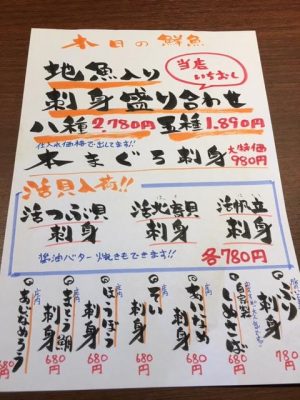 本日の鮮魚
地魚入り
当店
いちおし
刺身盛り合わせ
八種2,780円 五種1,890円
仕入れ価格で出してます!!
本まぐろ刺身 大特価
980円
活貝入荷!!
活つぶ貝
刺身
活北寄貝
刺身
活帆立
刺身
醤油バター焼きもできます!!
各780円
ぶり
刺身
780円
自家製
〆さば
680円
あいなめ
刺身
680円
そい
刺身
680円
ほうぼう
刺身
680円
まとう鯛
刺身
680円
あじなめろう
680円